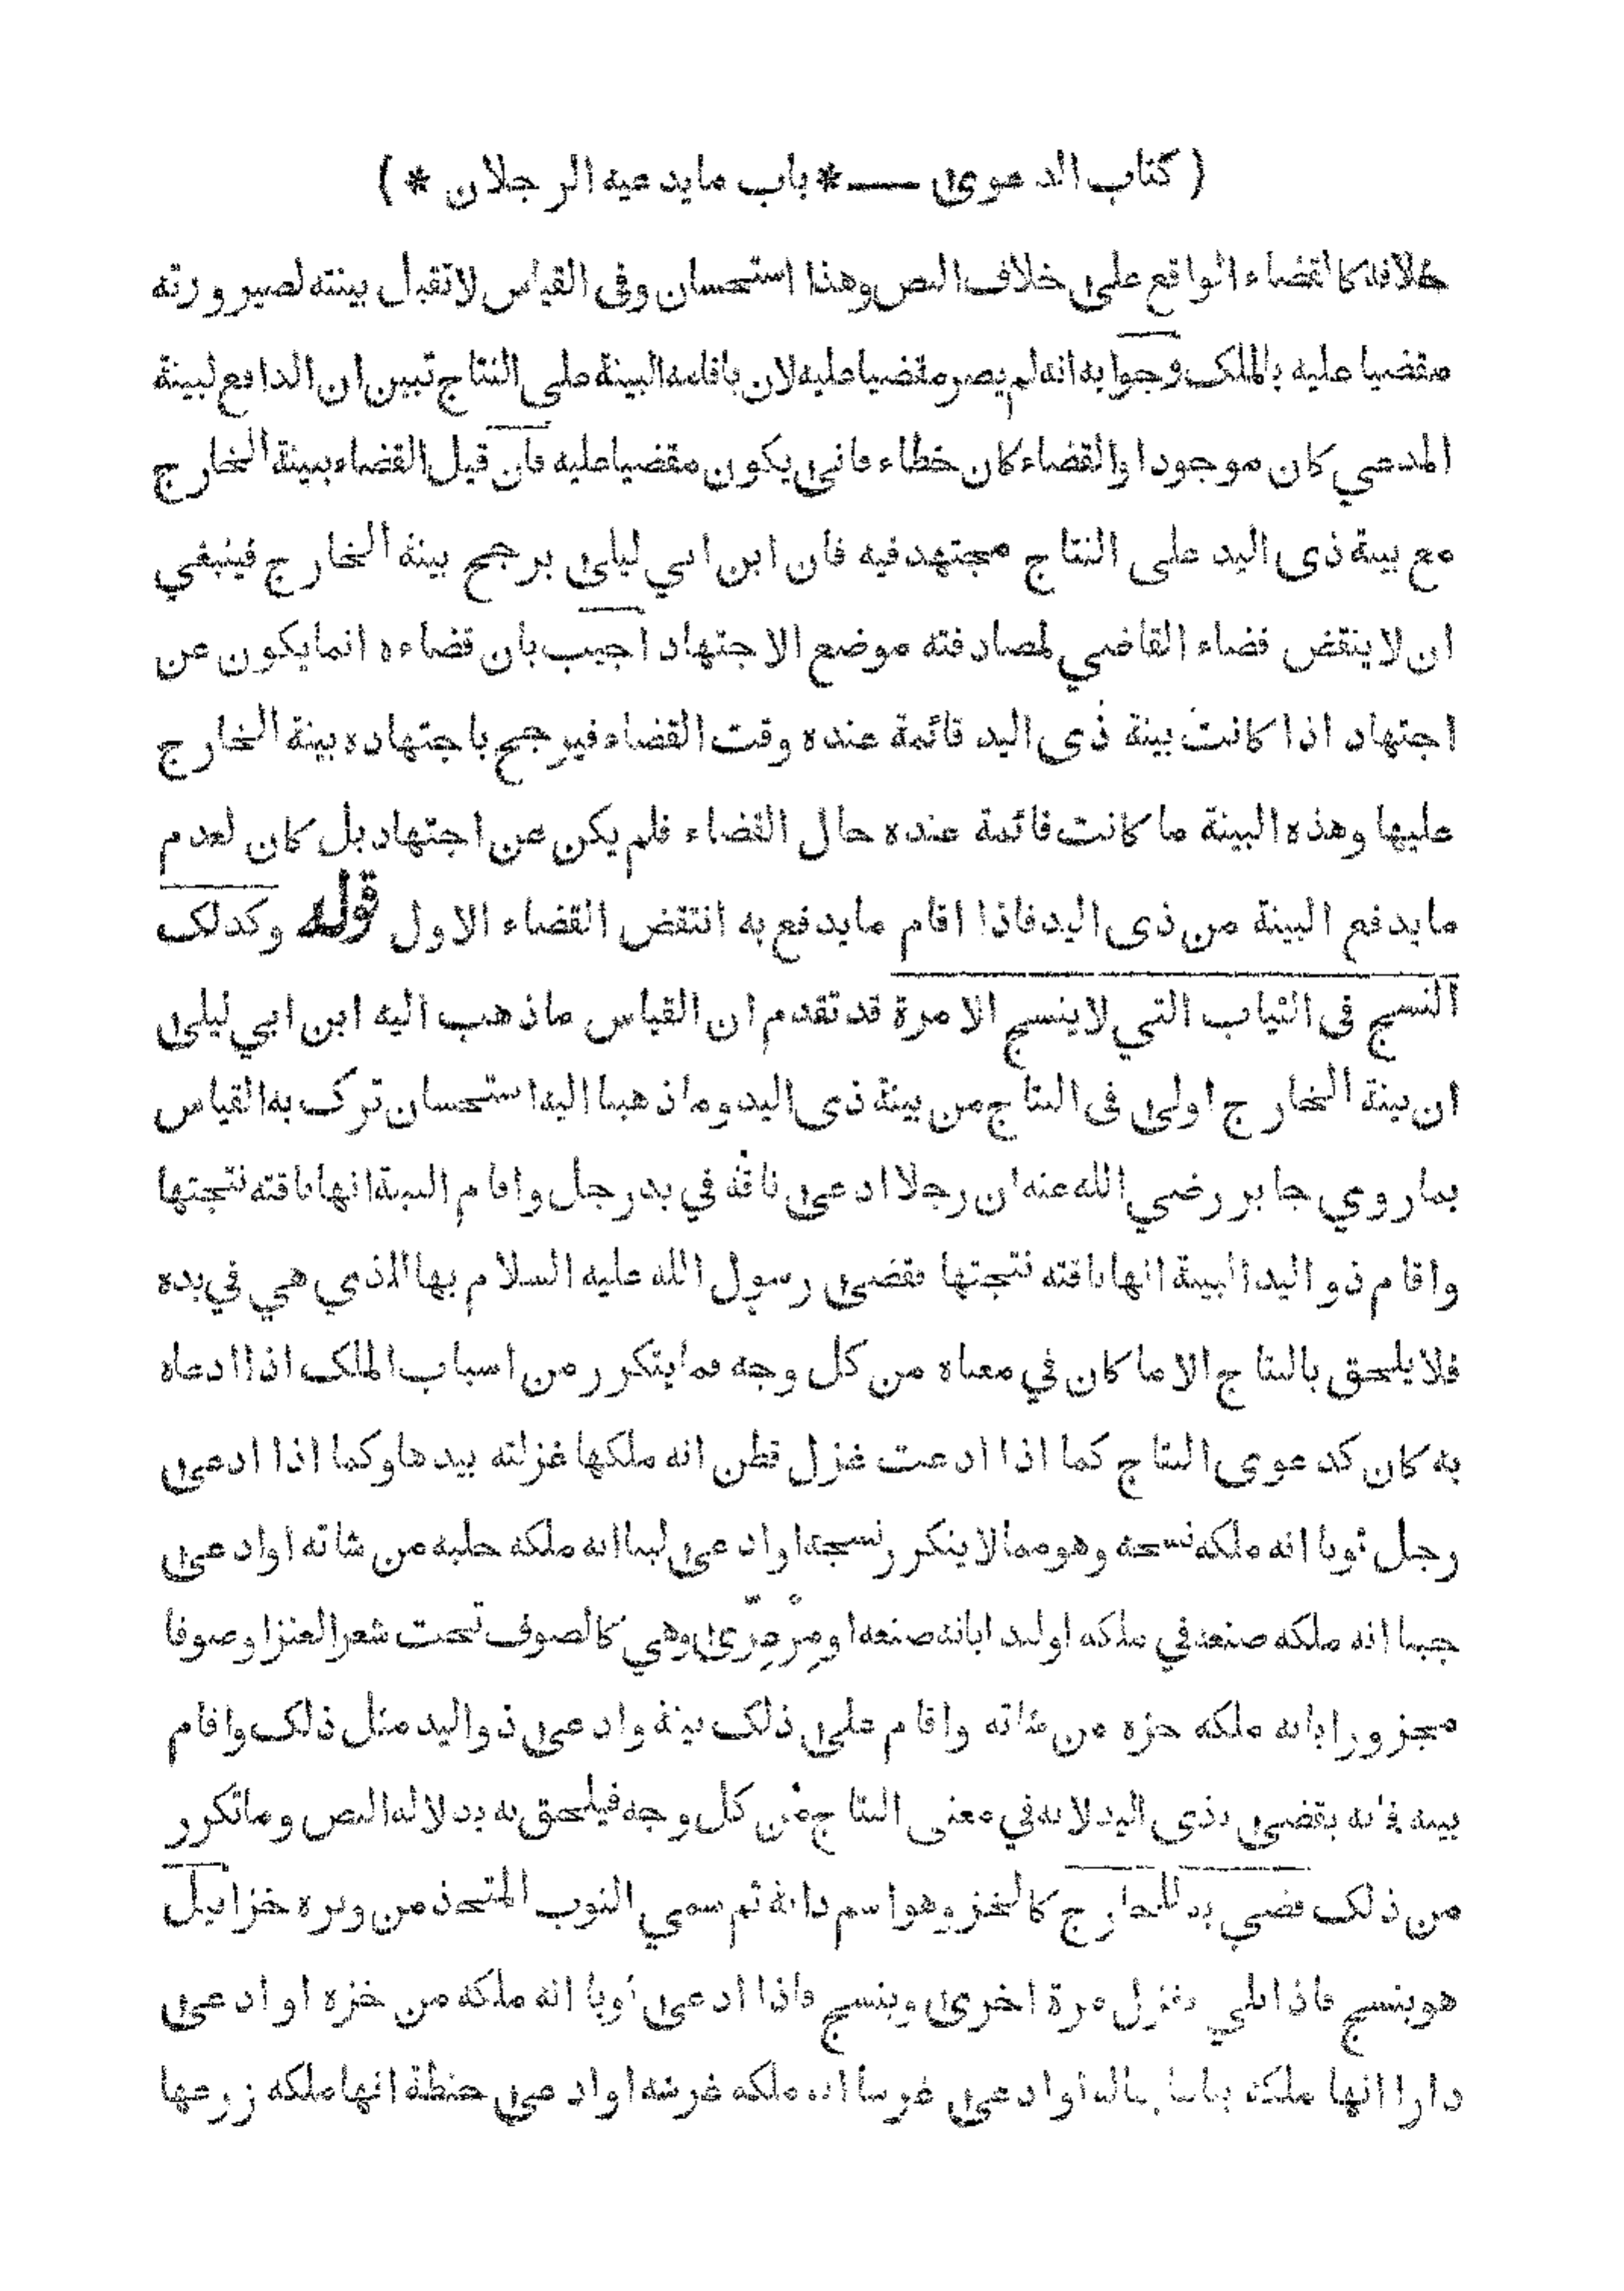 ( كتاب الدعوى ــــ* باب ما يدعيه الرجلان * )
خلافه كالقضاء الواقع على خلاف النص وهذا استحسان وفى القياس لا تقبل بينته لصيرورته
مقضيا عليه بالملك وجوابه انه لم يصر مقضيا عليه لان باقامه البينة على النتاج تبين ان الدافع لبينة
المدعي كان موجودا والقضاء كان خطاء فانى يكون مقضيا عليه فان قيل القضاء ببينة الخارج
مع بينة ذى اليد على النتاج مجتهد فيه فان ابن ابي ليلى يرجح بينة الخارج فينبغي
ان لا ينقض قضاء القاضي لمصادفته موضع الاجتهاد اجيب بان قضاءه انما يكون عن
اجتهاد اذا كانت بينة ذى اليد قائمة عنده وقت القضاء فيرجح باجتهاده بينة الخارج
عليها وهذه البينة ما كانت قائمة عنده حال القضاء فلم يكن عن اجتهاد بل كان لعدم
ما يدفع البينة من ذى اليد فاذا اقام ما يدفع به انتقض القضاء الاول قوله وكذلك
النسج فى الثياب التي لا ينسج الا مرة قد تقدم ان القياس ما ذهب اليه ابن ابي ليلى
ان بينة الخارج اولى فى النتاج من بينة ذى اليد وما ذهبنا اليه استحسان ترك به القياس
بما روي جابر رضي الله عنه ان رجلا ادعى ناقة في يد رجل واقام البينة انها ناقته نتجتها
واقام ذو اليد البينة انها ناقته نتجتها فقضى رسول الله عليه السلام بها للذي هي في يده
فلا يلحق بالنتاج الا ما كان في معناه من كل وجه فما يتكرر من اسباب الملك اذا ادعاه
به كان كدعوى النتاج كما اذا ادعت غزل قطن انه ملكها غزلته بيدها وكما اذا ادعى
رجل ثوبا انه ملكه نسجه وهو مما لا يتكرر نسجه او ادعى لبنا انه ملكه حلبه من شاته او ادعى
جبنا انه ملكه صنعه في ملكه او لبدا بانه صنعه او مِرْعِزّى وهي كالصوف تحت شعر العنز او صوفا
مجزورا بانه ملكه جزه من شاته واقام على ذلك بينة وادعى ذو اليد مثل ذلك واقام
بينه فانه يقضى بذى اليد لانه في معنى النتاج من كل وجه فيلحق به بدلالة النص وما تكرر
من ذلك قضي به للخارج كالخز وهو اسم دابة ثم سمي الثوب المتخذ من وبره خزا قيل
هو ينسج فاذا بلي يغزل مرة اخرى وينسج فاذا ادعى ثوبا انه ملكه من خزه او ادعى
دارا انها ملكه بناها بماله او ادعى غرسا انه ملكه غرسه او ادعى حنطة انها ملكه زرعها